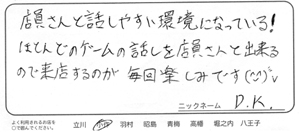 店員さんと話しやすい環境になっている!
ほとんどのゲームの話しを店員さんと出来る
ので来店するのが毎回楽しみです(^^)v
ニックネーム D.K.
よく利用されるお店を
○で囲んでください。 立川 羽村 昭島 青梅 高幡 堀之内 八王子